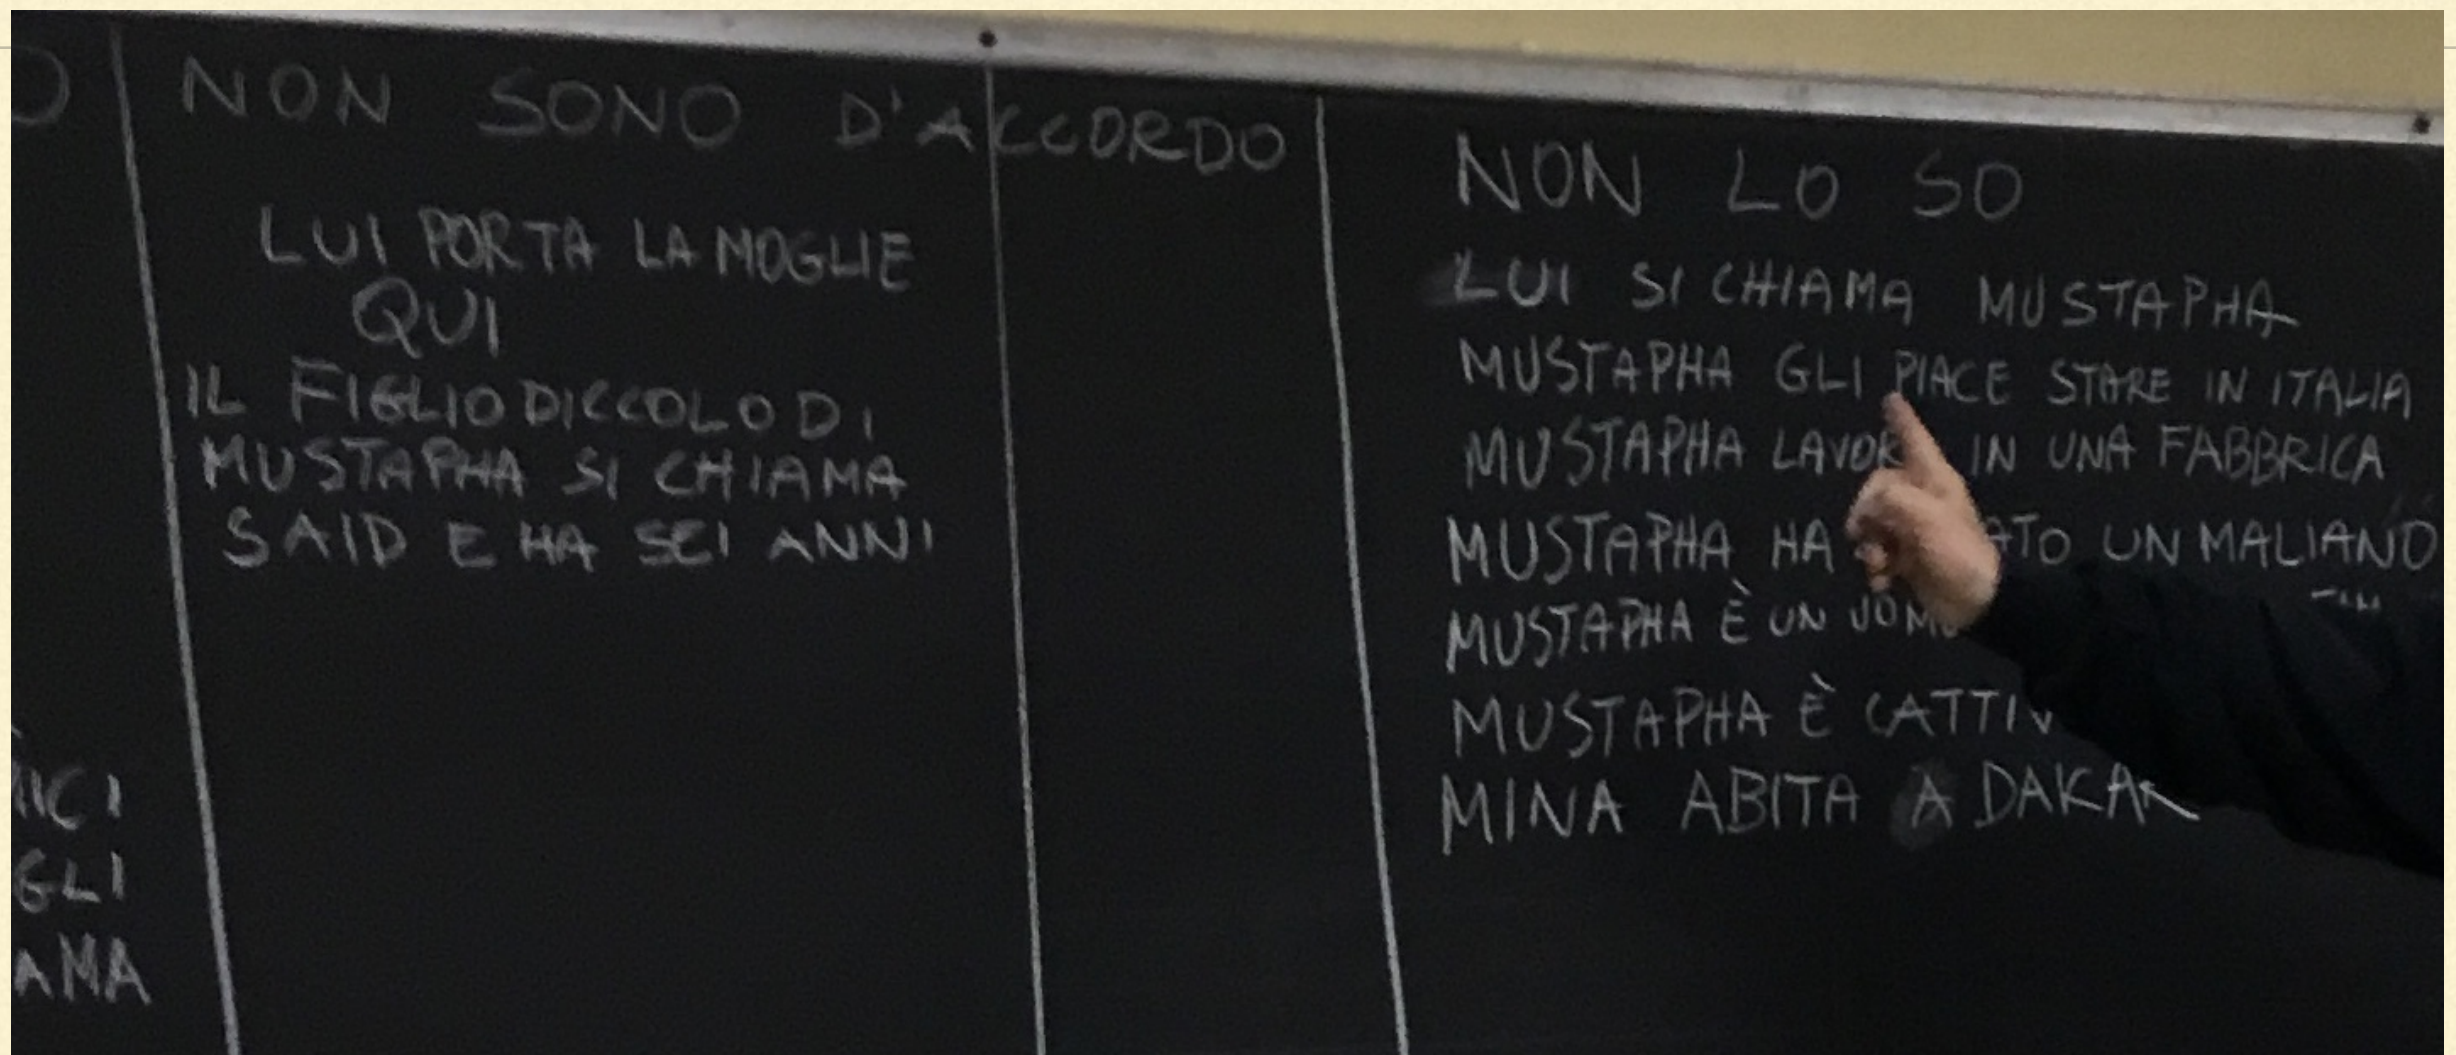 NON SONO D'ACCORDO
LUI PORTA LA MOGLIE
QUI
IL FIGLIO DICCOLO DI
MUSTAPHA SI CHIAMA
SAID E HA SEI ANNI
NON LO SO
LUI SI CHIAMA MUSTAPHA
MUSTAPHA GLI PIACE STARE IN ITALIA
MUSTAPHA LAVORA IN UNA FABBRICA
MUSTAPHA HA UN MALIANO
MUSTAPHA È UN
MUSTAPHA È
MINA ABITA A DAKAR